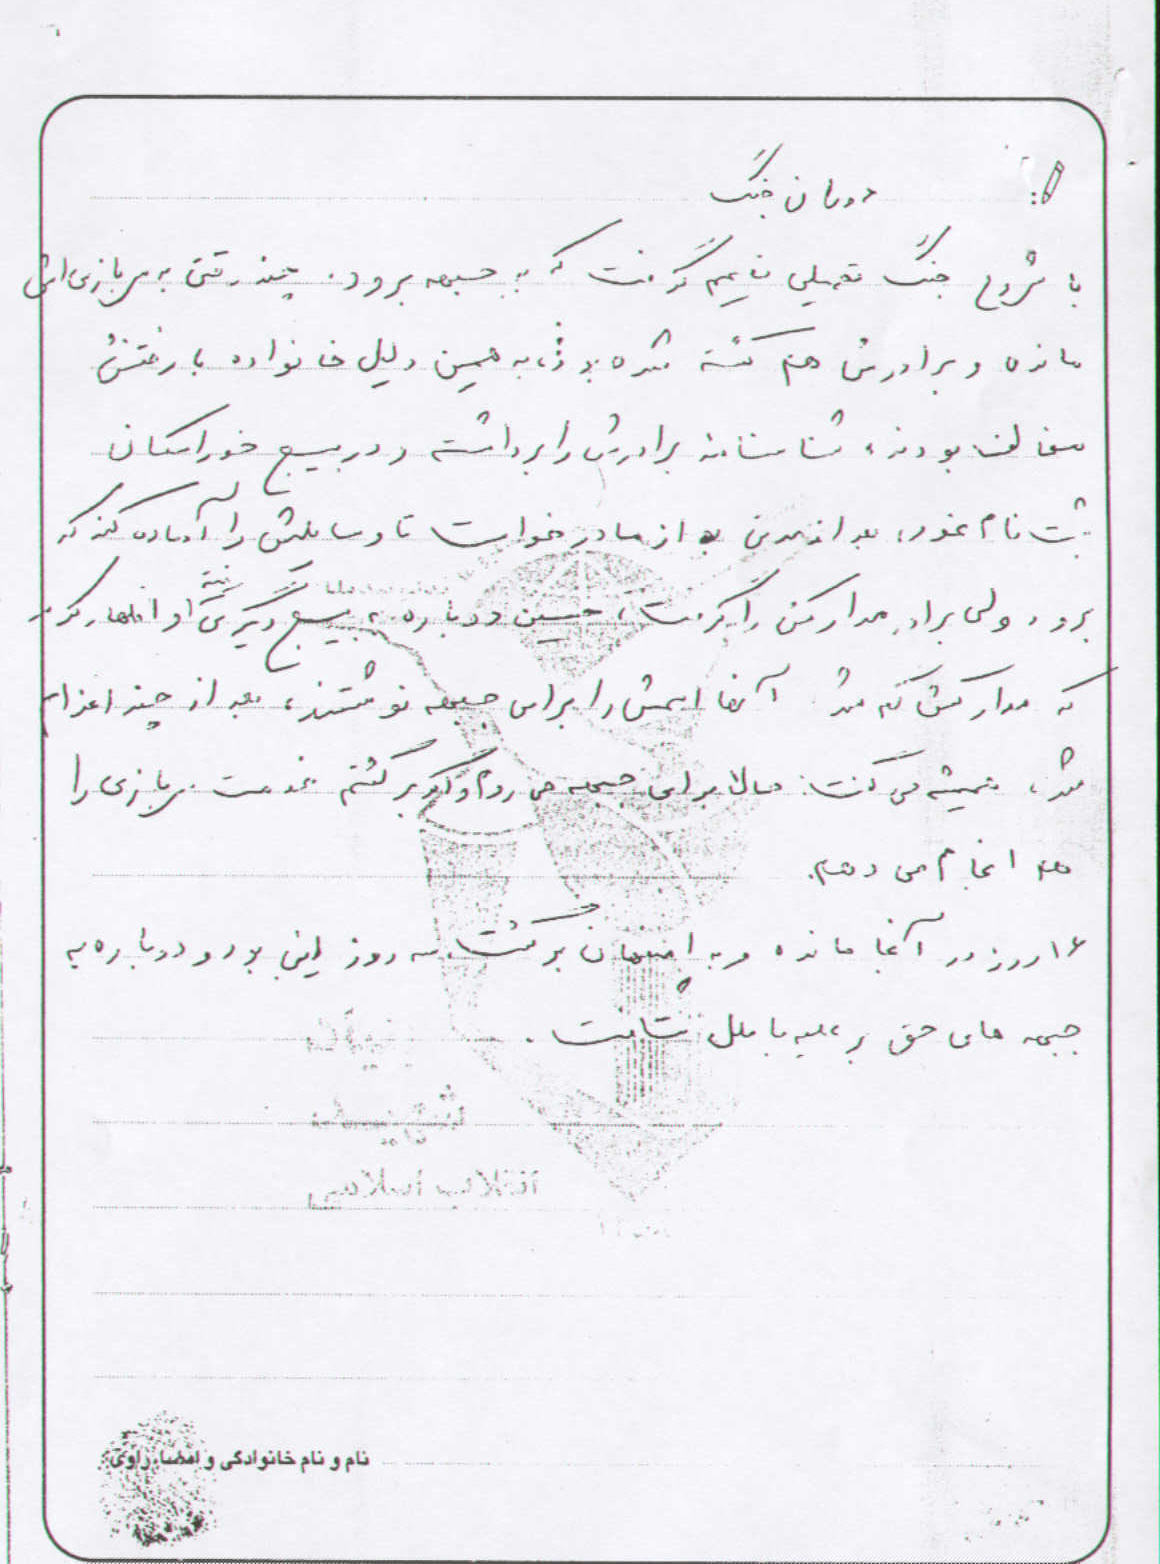 دوران جنگ
با شروع جنگ تحمیلی تصمیم گرفت که به جبهه برود. چند وقتی به سربازی اش
مانده و برادرش هم کشته شده بود، به همین دلیل خانواده با رفتنش
مخالف بودند، شناسنامه برادرش را برداشته و در بسیج خوراسگان
ثبت نام نمود، بعد از مدتی از مادر خواست تا وسایلش را آماده کند که
برود ولی برادر مدارکش را گرفت، حسین دوباره به بسیج دیگری رفته او اظهار کرد
که مدارکش گم شد. آنها اسمش را برای جبهه نوشتند، بعد از چند اعزام
شد، همیشه می گفت: حالا برای جبهه می روم و اگر برگشتم خدمت سربازی را
هم انجام می دهم.
۱۶ روز در آنجا مانده و به اصفهان برگشت. سه روز این بود و دوباره به
جبهه های حق بر علیه باطل شتافت.
انقلاب اسلامی
نام و نام خانوادگی و امضاء راوی: